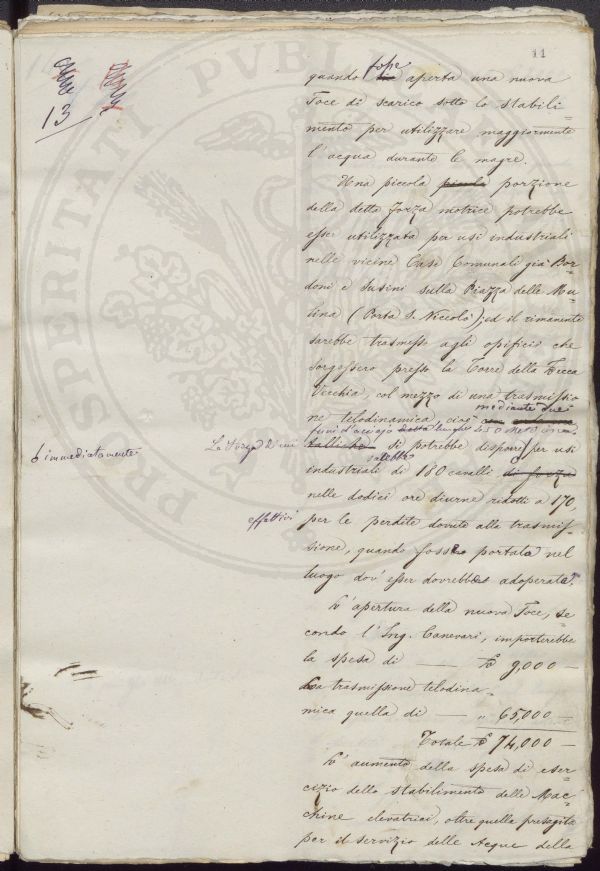 11
13
fosse
quando aperta una nuova
Foce di scarico sotto lo stabili-
mento per utilizzare maggiormente
l'acqua durante le magre.
Una piccola piccola porzione
della detta forza motrice potrebbe
esser utilizzata per usi industriali
nelle vicine Case Comunali già Bor-
doni e Susini sulla Piazza delle Mu-
lina (Porta S. Niccolò); ed il rimanente
sarebbe trasmesso agli opifici che
sorgessero presso la Torre della Zecca
Vecchia, col mezzo di una trasmissio-
ne telodinamica, cioè mediante due
funi d'acciajo
La forza di cui si potrebbe disporre per usi
immediatamente
sarebbe
industriali di 180 cavalli di forza
nelle dodici ore diurne ridotti a 170,
effettivi
per le perdite dovute alla trasmis-
sione, quando fosse portata nel
luogo dov'esser dovrebbe adoperata.
L'apertura della nuova Foce, se-
condo l'Ing. Canevari, importerebbe
la spesa di — £ 9,000 —
La trasmissione telodina-
mica quella di — „ 65,000 —
Totale £ 74,000 —
L'aumento della spesa di eser-
cizio dello stabilimento delle Mac-
chine elevatrici, oltre quella presagita
per il servizio delle Acque della
PROSPERITATI PVBLICAE